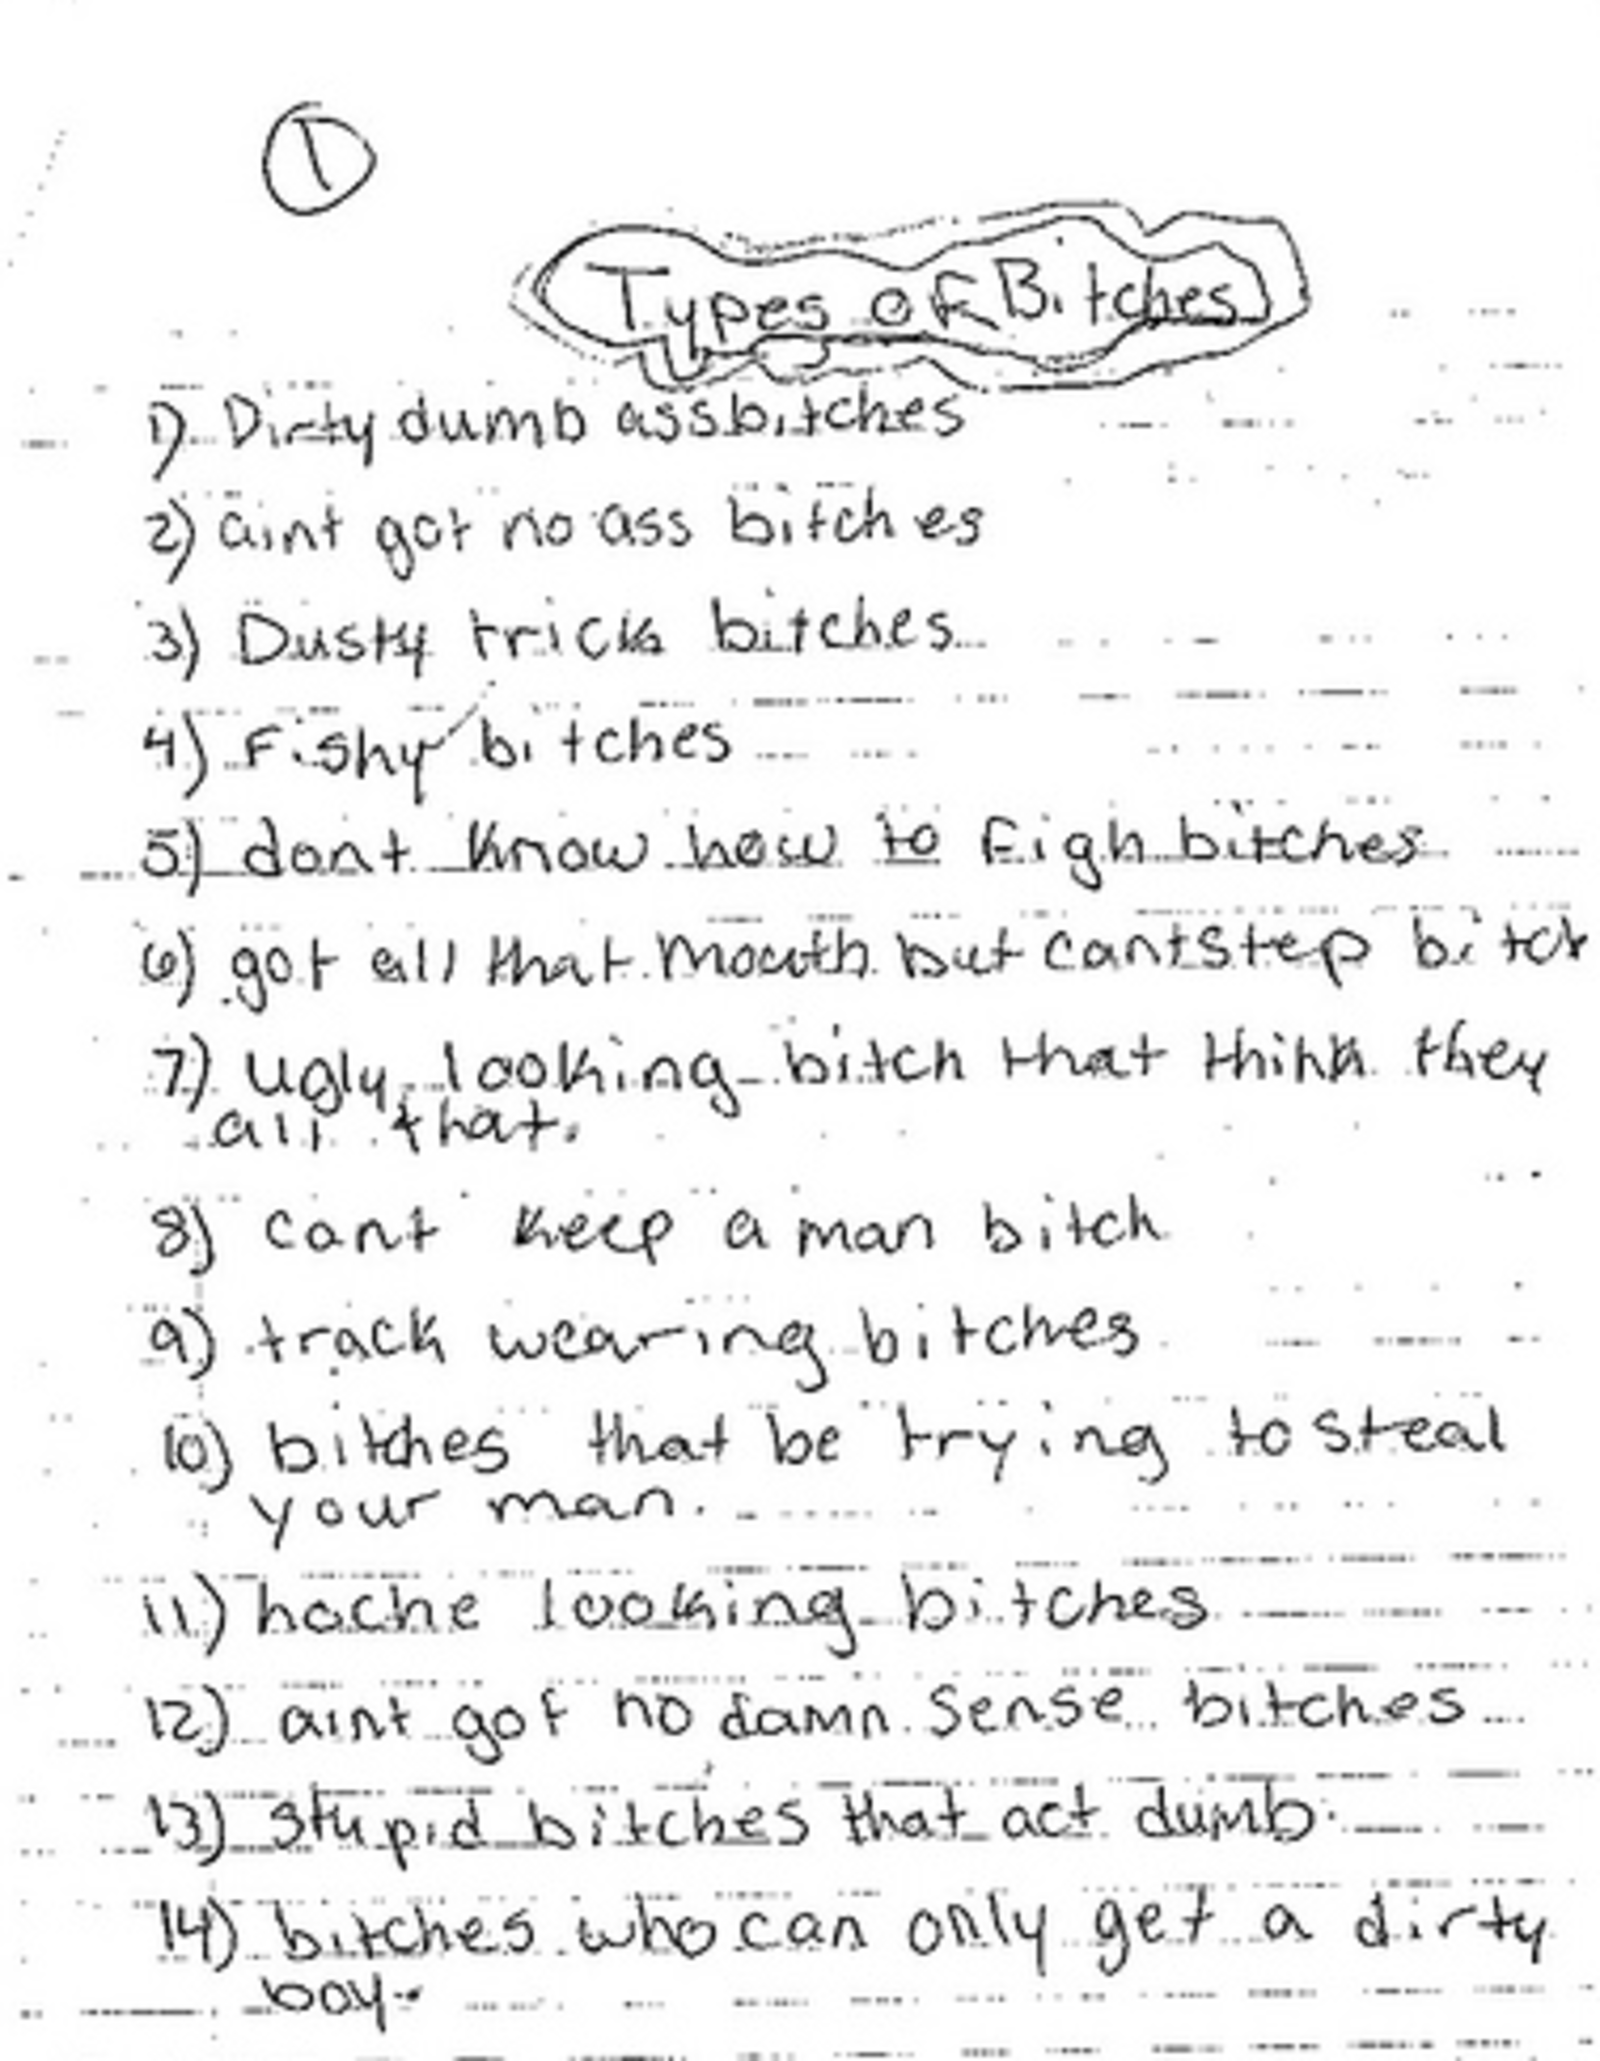 1
Types of Bitches
1) Dirty dumb ass bitches
2) aint got no ass bitches
3) Dusty trick bitches
4) Fishy bitches
5) dont know how to figh bitches
6) got all that mouth but cant step bitch
7) ugly looking bitch that think they
all that.
8) cant keep a man bitch
9) track wearing bitches
10) bitches that be trying to steal
your man.
11) hoche looking bitches
12) aint got no damn sense bitches
13) stupid bitches that act dumb.
14) bitches who can only get a dirty
boy.